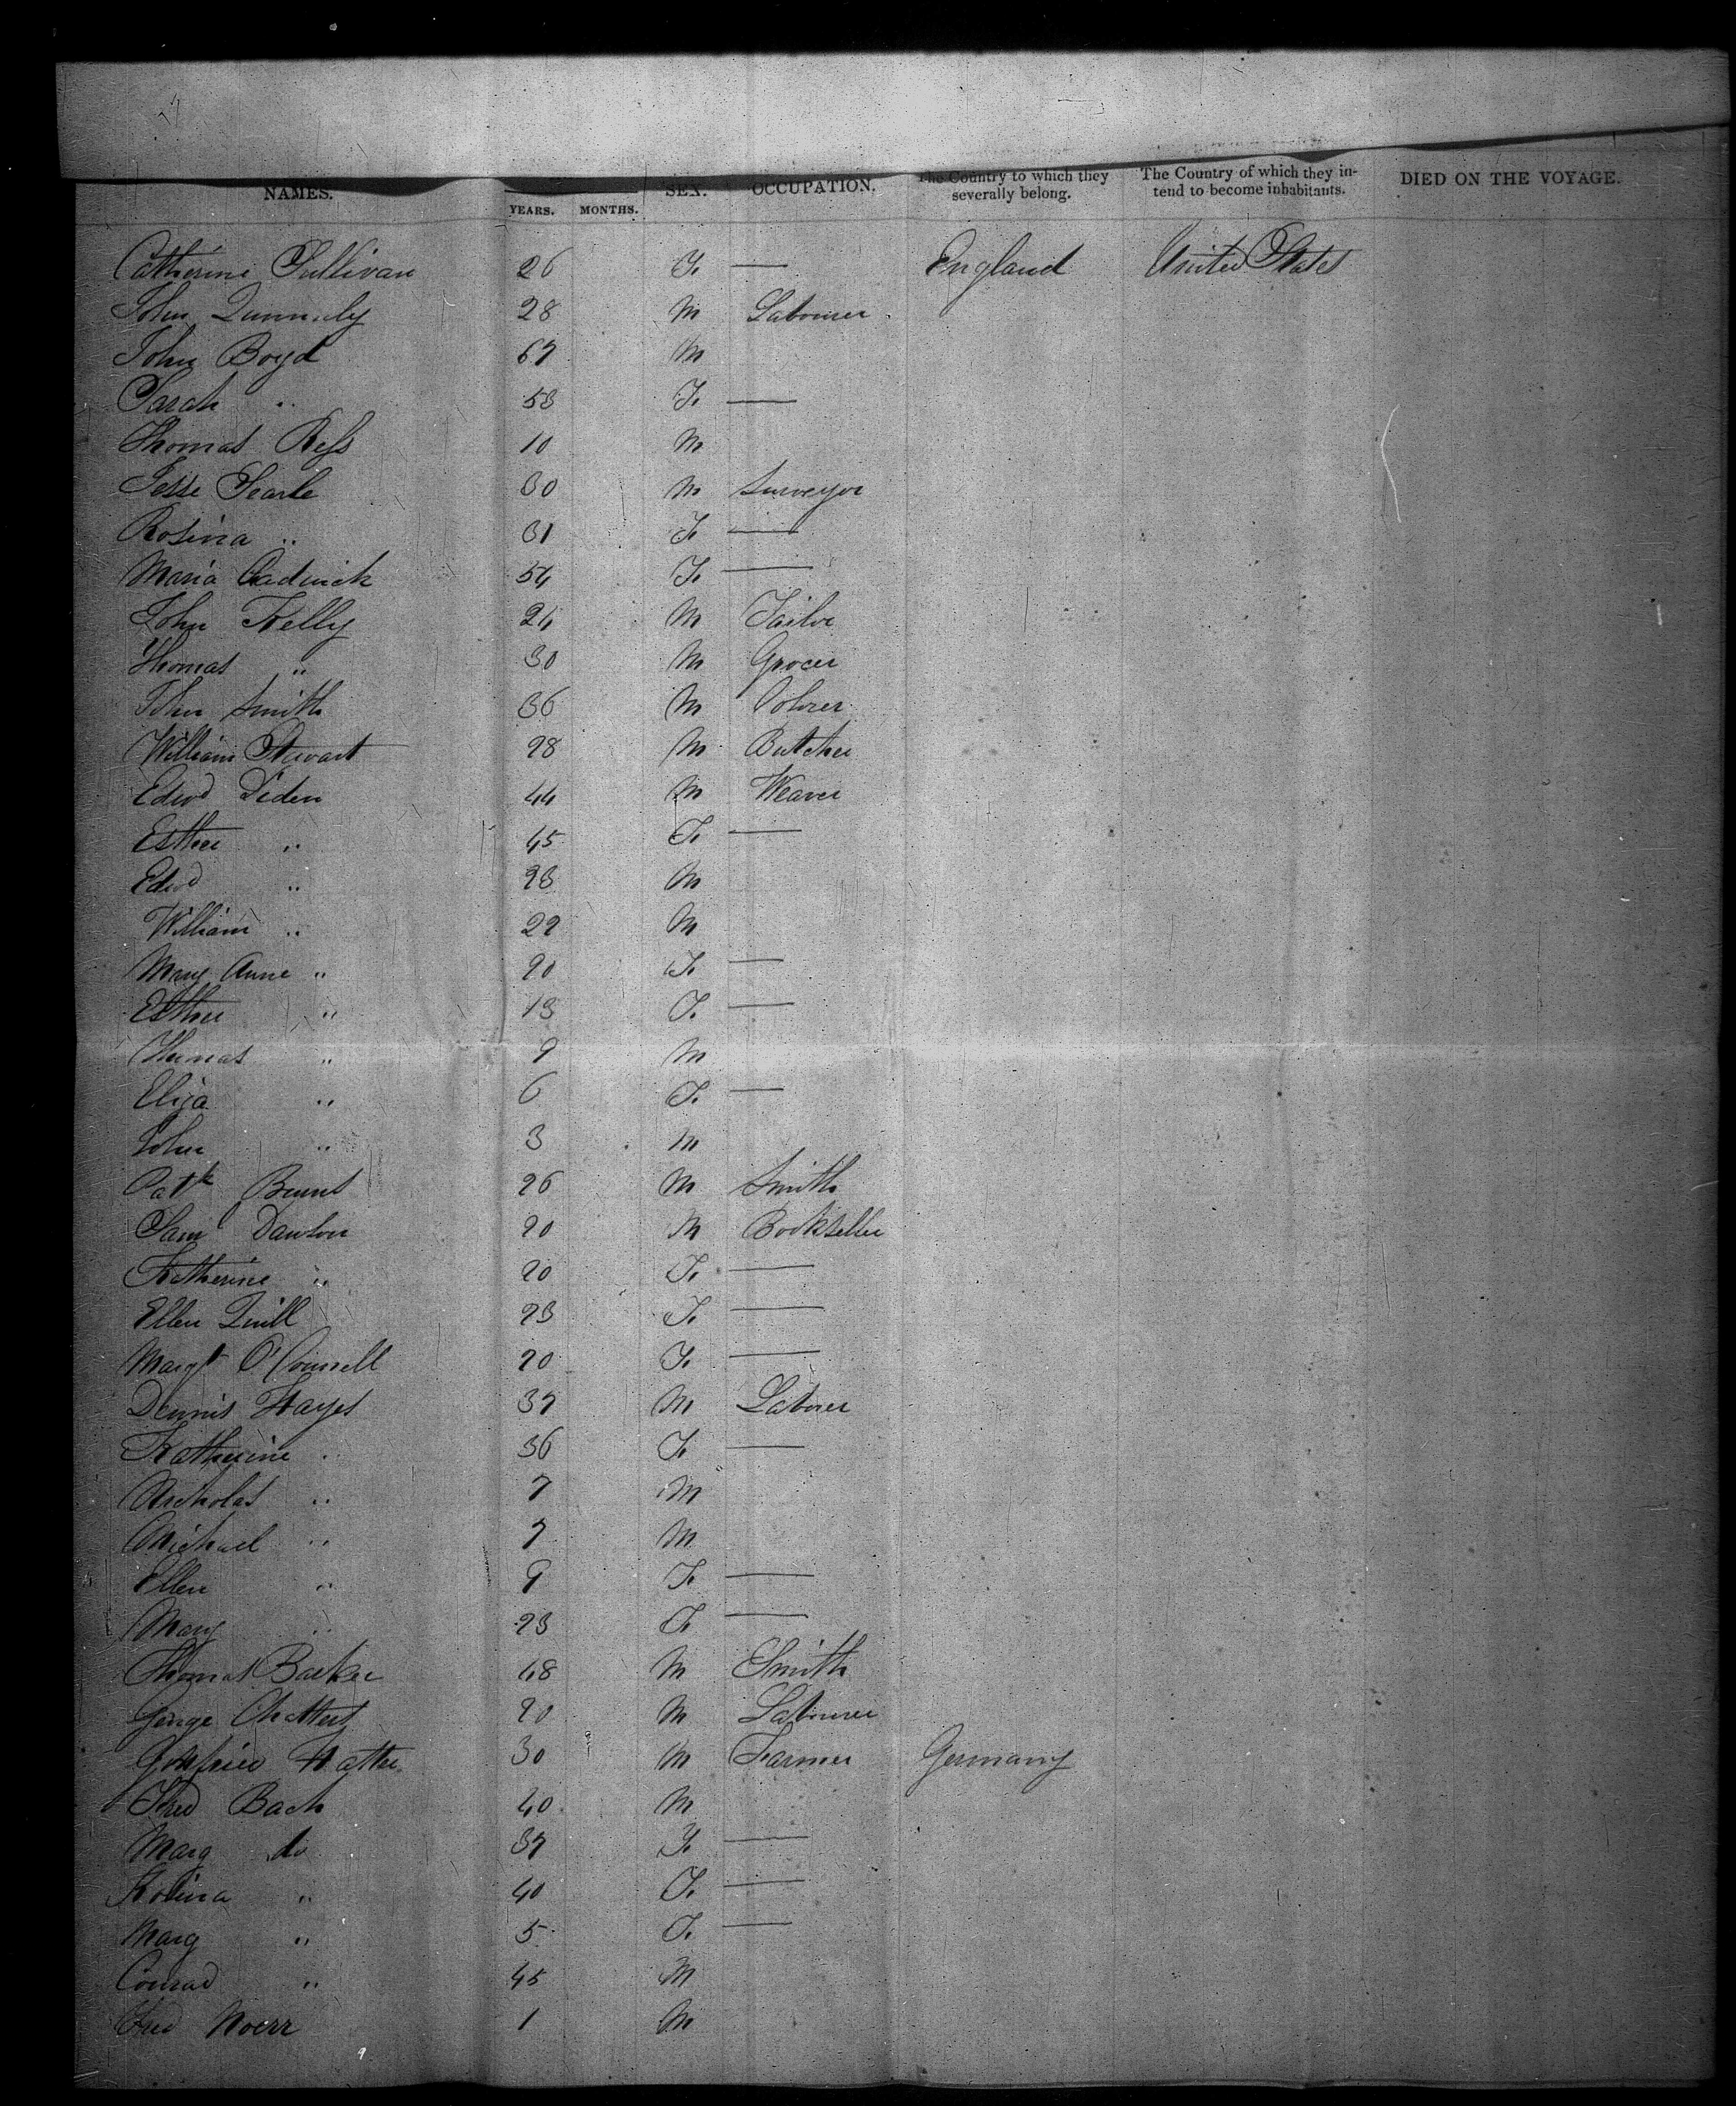 NAMES. YEARS. MONTHS. SEX. OCCUPATION. The Country to which they severally belong. The Country of which they intend to become inhabitants. DIED ON THE VOYAGE.
Catherine Sullivan 26 F. — England United States
John 28 M Labourer
John Boyd 67 M
Sarah " 53 F. —
Thomas Ress 10 M
Jesse Searle 30 M Surveyor
Rosina " 31 F. —
Maria Cadwick 54 F. —
John Kelly 24 M Tailor
Thomas " 30 M Grocer
John Smith 36 M
William Stewart 28 M Butcher
Edwd Diden 44 M Weaver
Esther " 45 F. —
Edwd " 23 M
William " 22 M
Mary Anne " 20 F. —
Esther " 13 F. —
Thomas " 9 M
Eliza " 6 F. —
John " 3 M
Patk Burns 26 M Smith
Saml Dawson 20 M Bookseller
Katherine " 20 F. —
Ellen Quill 23 F. —
Margt O'Connell 20 F. —
Dennis Hayes 37 M Laborer
Katherine " 36 F. —
Nicholas " 7 M
Michael " 7 M
Ellen " 9 F. —
Mary " 23 F. —
Thomas Barker 48 M Smith
George 20 M Labourer
Gottfried 30 M Farmer Germany
Fred Bach 40 M
Marg do 37 F. —
Rosina " 40 F. —
Marg " 5 F. —
Conrad " 45 M
Fred Noerr 1 M